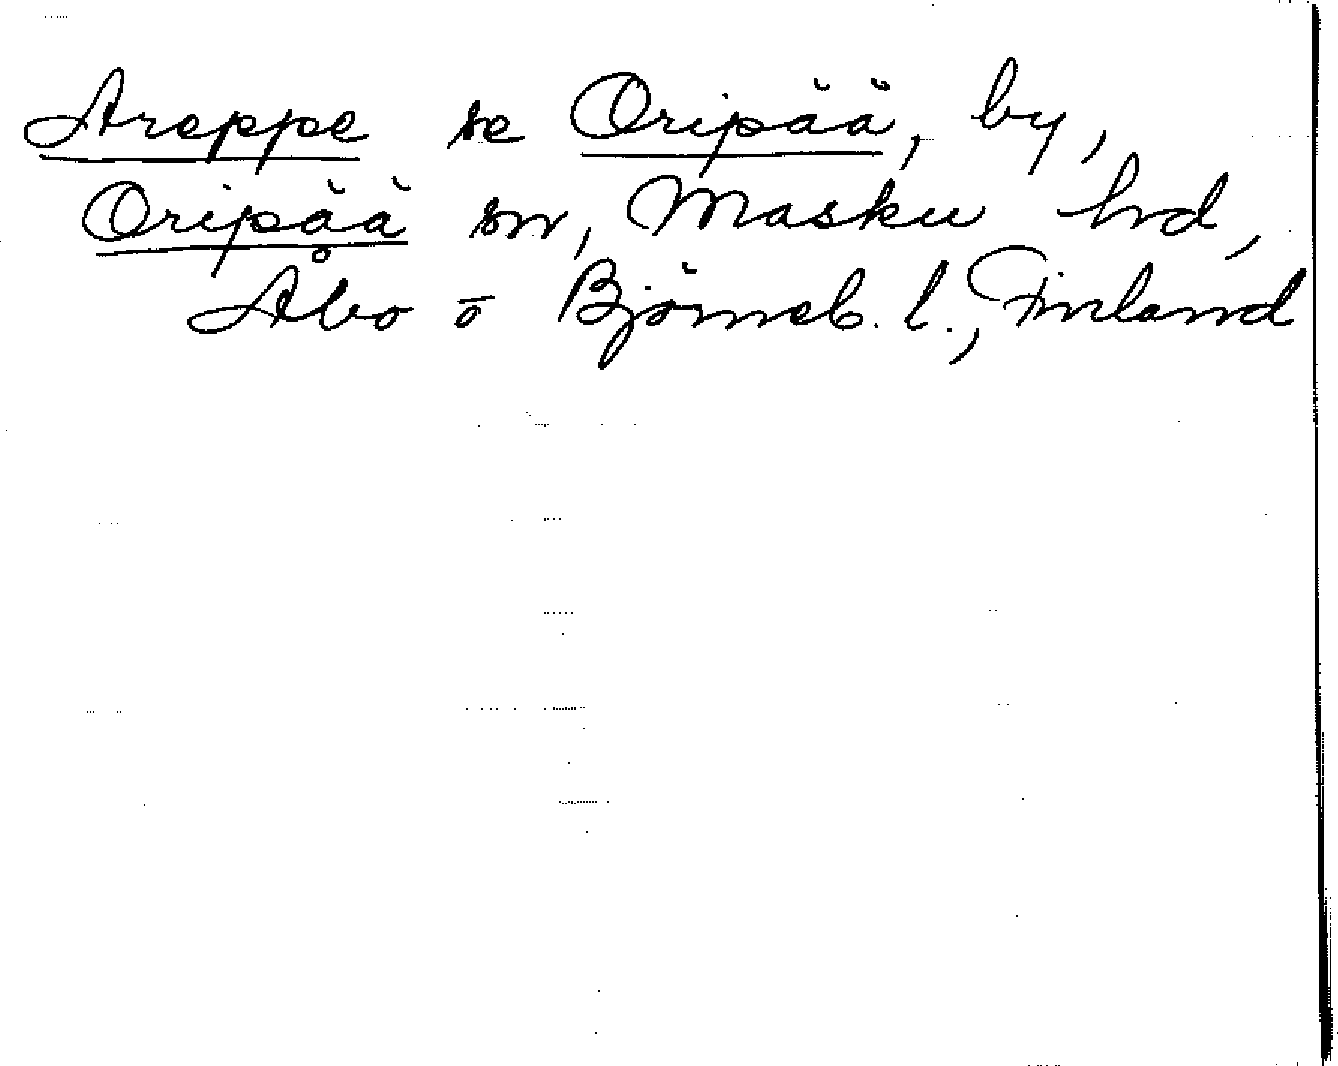 Areppe se Oripää, by,
Oripää sn, Masku hd,
Åbo o Björneb. l., Finland